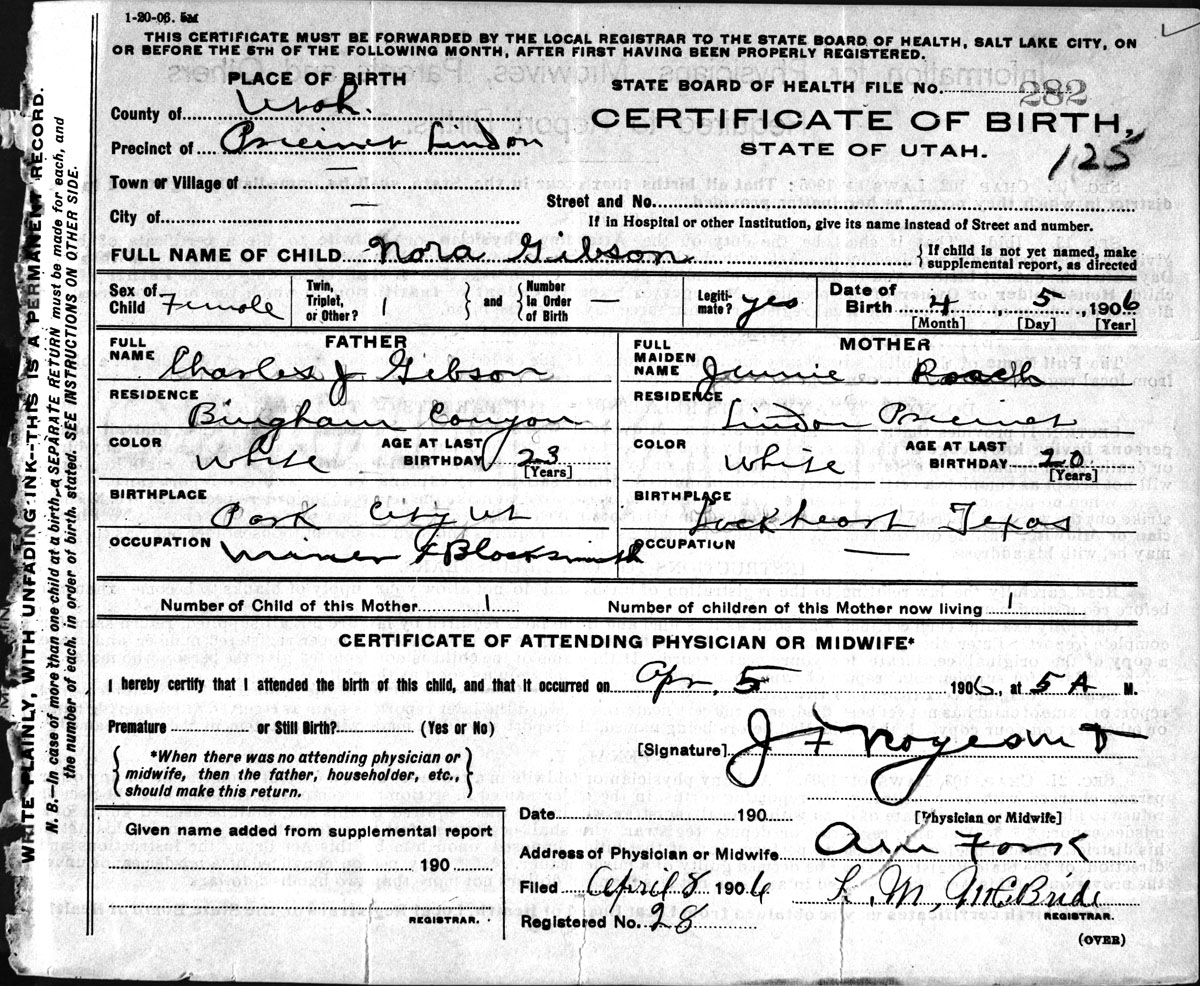 1-20-06. 5M
THIS CERTIFICATE MUST BE FORWARDED BY THE LOCAL REGISTRAR TO THE STATE BOARD OF HEALTH, SALT LAKE CITY, ON
OR BEFORE THE 5TH OF THE FOLLOWING MONTH, AFTER FIRST HAVING BEEN PROPERLY REGISTERED.
PLACE OF BIRTH
County of Utah
Precinct of Precinct Lindon
Town or Village of —
City of —
STATE BOARD OF HEALTH FILE No. 282
CERTIFICATE OF BIRTH,
STATE OF UTAH.
125
Street and No.
If in Hospital or other Institution, give its name instead of Street and number.
FULL NAME OF CHILD Nora Gibson { If child is not yet named, make
supplemental report, as directed
Sex of Child Female
Twin, Triplet, or Other? 1 } and { Number In Order of Birth —
Legiti-mate? yes
Date of Birth 4 5, 1906
[Month] [Day] [Year]
FATHER
FULL NAME Charles J Gibson
RESIDENCE Bingham Canyon
COLOR White AGE AT LAST BIRTHDAY 23 [Years]
BIRTHPLACE Park City Ut
OCCUPATION Miner & Blacksmith
MOTHER
FULL MAIDEN NAME Jennie Roach
RESIDENCE Lindon Precinct
COLOR White AGE AT LAST BIRTHDAY 20 [Years]
BIRTHPLACE Lockheart Texas
OCCUPATION —
Number of Child of this Mother 1 Number of children of this Mother now living 1
CERTIFICATE OF ATTENDING PHYSICIAN OR MIDWIFE*
I hereby certify that I attended the birth of this child, and that it occurred on Apr. 5 1906, at 5 A M.
Premature or Still Birth? (Yes or No)
{ *When there was no attending physician or
midwife, then the father, householder, etc.,
should make this return. }
[Signature] J F Noyes M D
[Physician or Midwife]
Given name added from supplemental report
190
REGISTRAR.
Date 190
Address of Physician or Midwife Am Fork
Filed April 8 1906 L. M. McBride
REGISTRAR.
Registered No. 28
(OVER)
WRITE PLAINLY, WITH UNFADING INK--THIS IS A PERMANENT RECORD.
N. B.--In case of more than one child at a birth, a SEPARATE RETURN must be made for each, and
the number of each, in order of birth, stated. SEE INSTRUCTIONS ON OTHER SIDE.